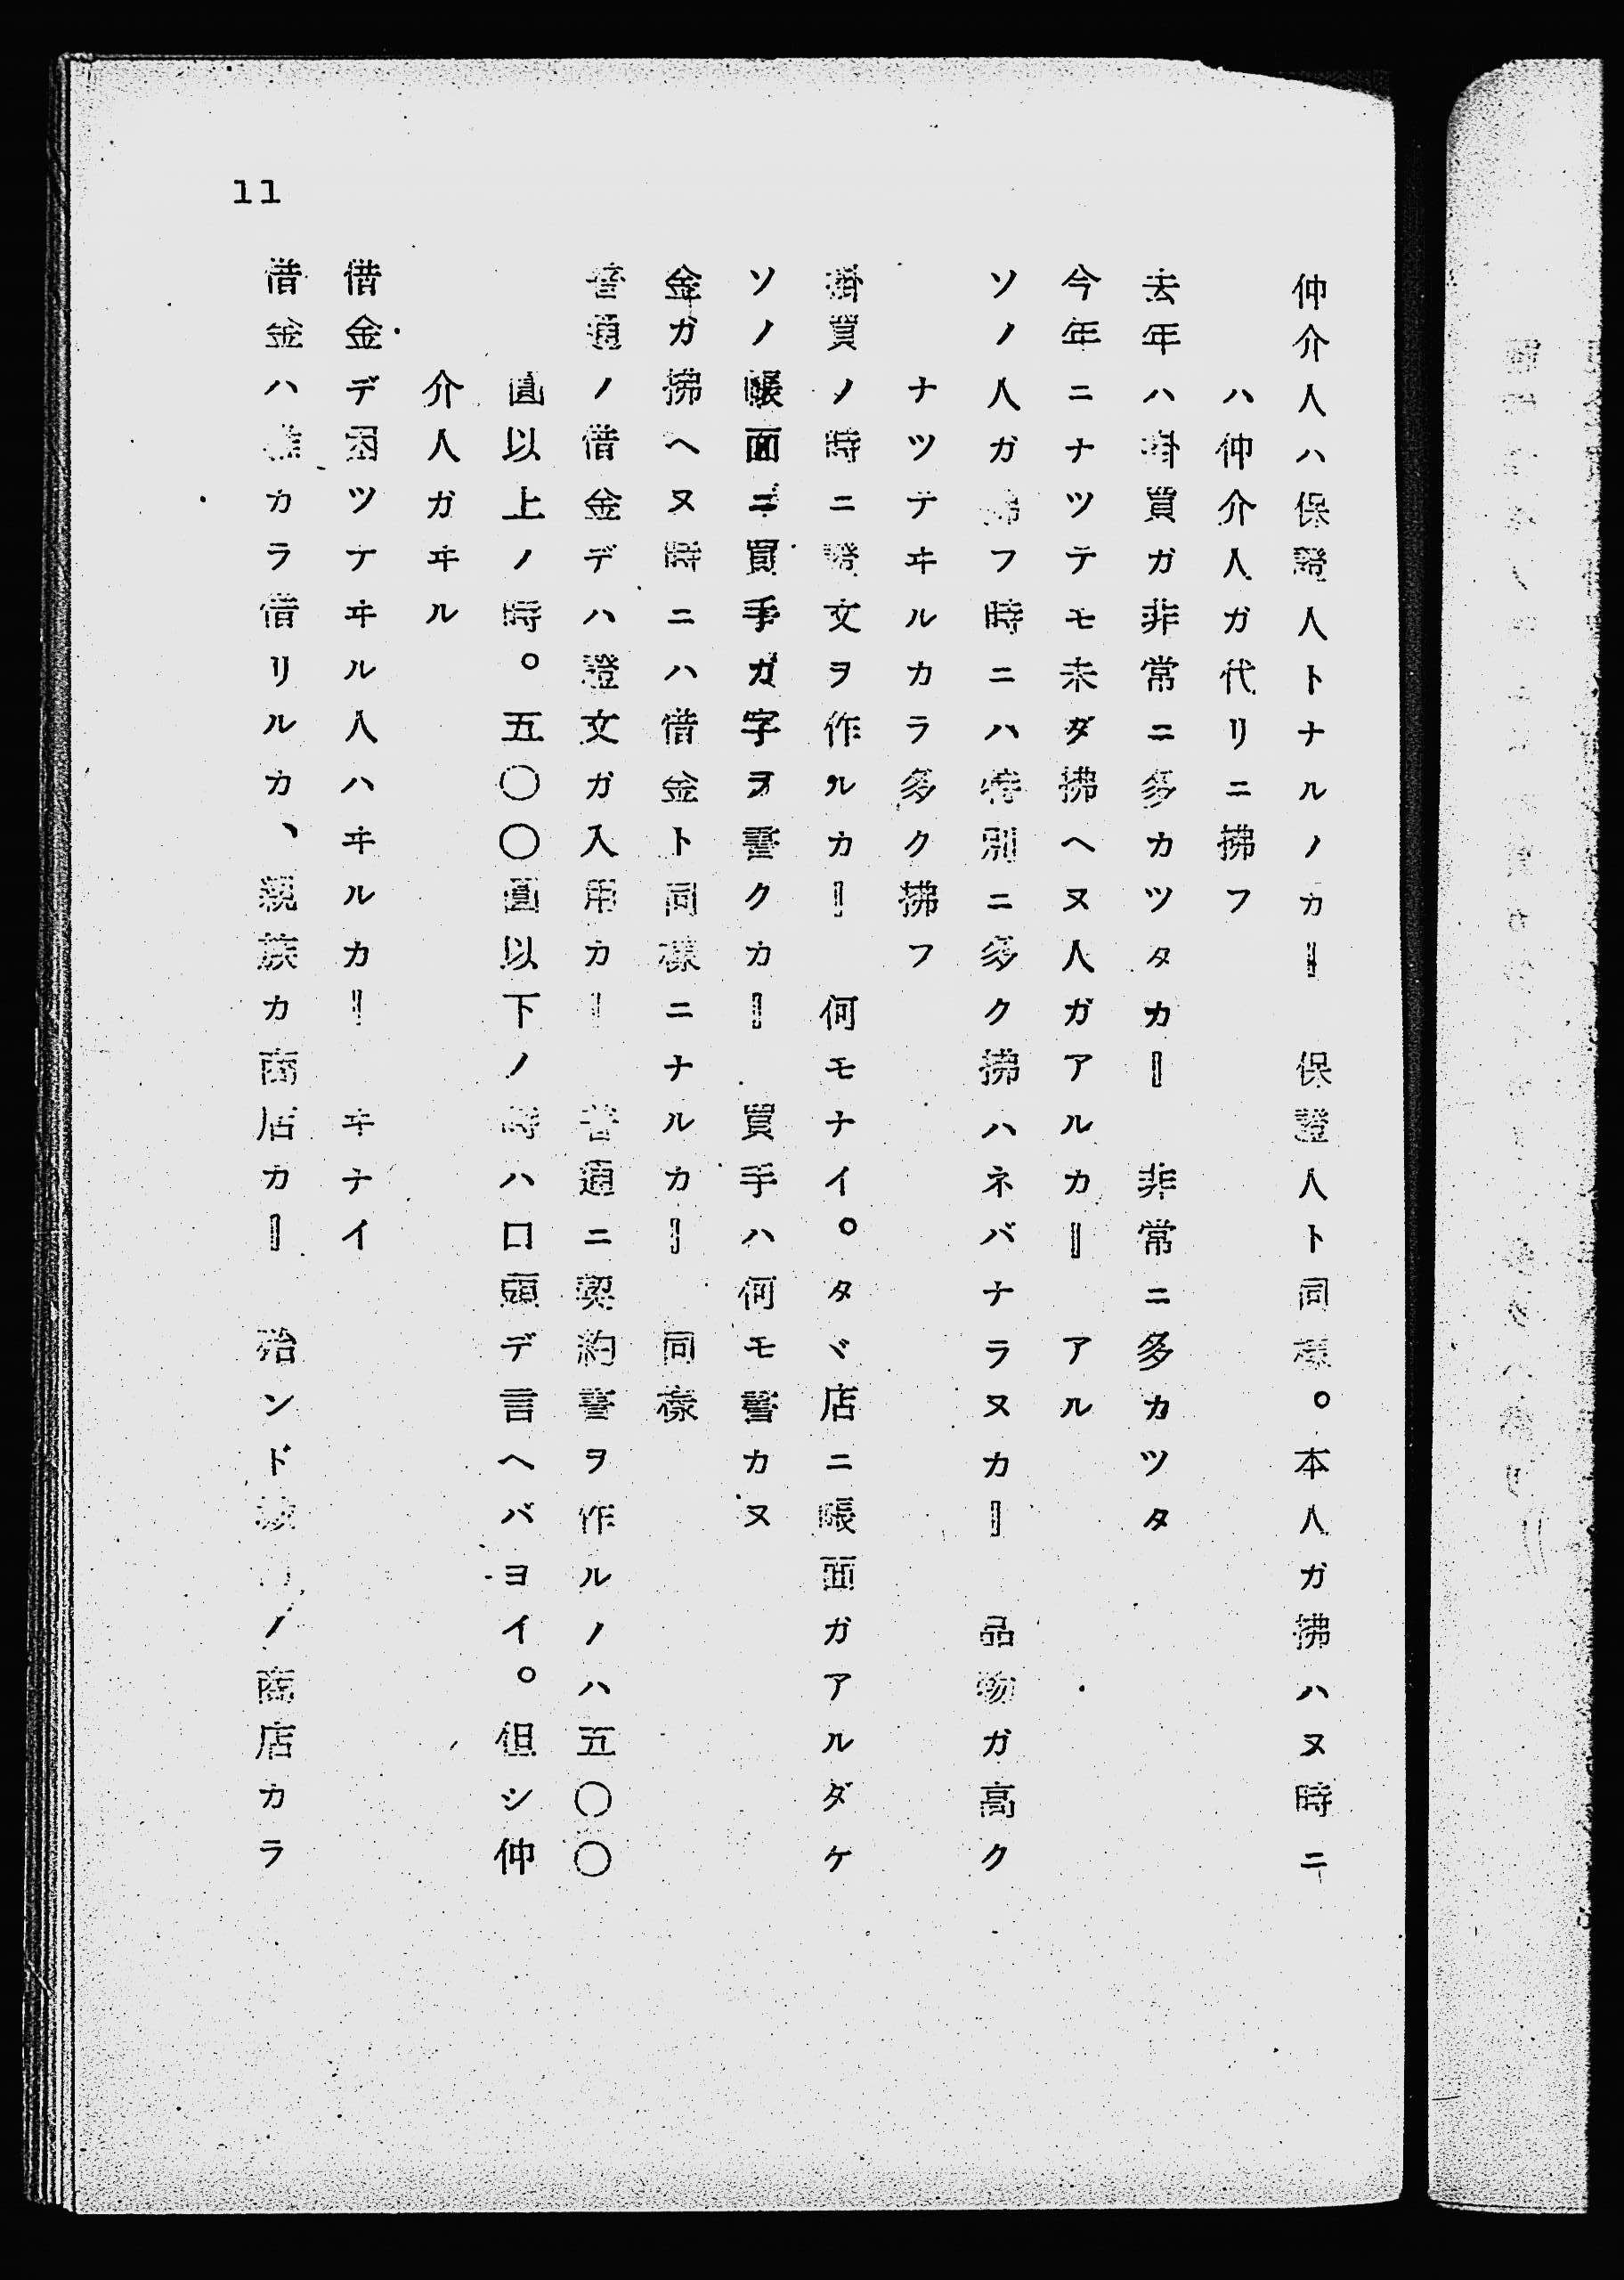 仲介人ハ保證人トナルノカ‖　保證人ト同樣。本人ガ拂ハヌ時ニ
ハ仲介人ガ代リニ拂フ
去年ハ掛買ガ非常ニ多カツタカ‖　非常ニ多カツタ
今年ニナツテモ未ダ拂ヘヌ人ガアルカ‖　アル
ソノ人ガ拂フ時ニハ特別ニ多ク拂ハネバナラヌカ‖　品物ガ高ク
ナツテヰルカラ多ク拂フ
掛買ノ時ニ證文ヲ作ルカ‖　何モナイ。タヾ店ニ帳面ガアルダケ
ソノ帳面ニ買手ガ字ヲ書クカ‖　買手ハ何モ書カヌ
金ガ拂ヘヌ時ニハ借金ト同樣ニナルカ‖　同樣
普通ノ借金デハ證文ガ入用カ‖　普通ニ契約書ヲ作ルノハ五〇〇
圓以上ノ時。五〇〇圓以下ノ時ハ口頭デ言ヘバヨイ。但シ仲
介人ガヰル
借金デ困ツテヰル人ハヰルカ‖　ヰナイ
借金ハ誰カラ借リルカ、親族カ商店カ‖　殆ンドノ商店カラ
11